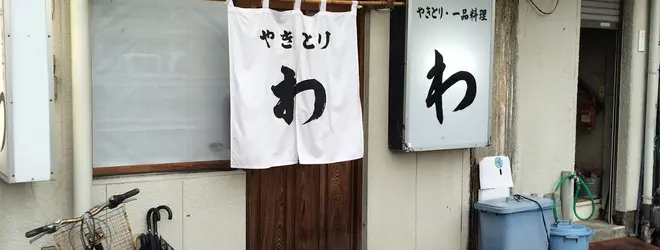 やきとり
わ
やきとり・一品料理
わ